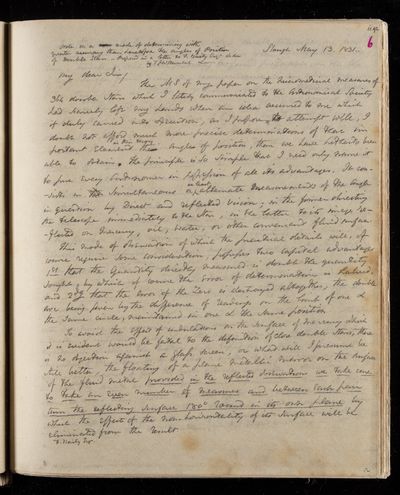 Note on a mode of determining with
greater accuracy than heretofore the angles of Position
of Double Stars - Proposed in a letter to F. Baily Esq.
by J.F.W. Herschel
6
Slough May 13. 1831.
My dear Sir,
The MS of my paper on the Micrometrical measures of
364 double Stars which I lately communicated to the Astronomical Society
had scarcely left my hands when an idea occurred to me which
if duly carried into execution, as I propose to attempt, will, I
doubt not afford much more precise determinations of those important
elements their angles of position, than we have hitherto been
able to obtain. The principle is so simple that I need only name it
to put every Astronomer in possession of all its advantages. It consists
in the Simultaneous or alternate measurements of the angle
in question by Direct and reflected Vision; in the former directing
the telescope immediately to the star, in the latter to its image reflected
on Mercury, oil, water, or other convenient fluid surface.
This mode of observation of which the practical details will of
course require some consideration, possesses two capital advantages
1st that the quantity directly measured is double the quantity
sought, by which of course the error of determination is halved.
and 2nd that the error of the Zero is destroyed altogether, the double
arc being given by the difference of readings on the limb of one &
the same circle, maintained in one & the same position
To avoid the effect of undulations on the surface of mercury which
it is evident would be fatal to the definition of close double stars, there
is no objection against a glass screen, or what will I presume be
still better, the floating of a plane metallic mirror on the surface
of the fluid metal provided in the reflected observations we take care
to take an even number of measures and between each pair
turn the reflecting surface 180° round in its own plane by
which the effect of the non-horizontality of its surface will be
eliminated from the result
F. Baily Esq